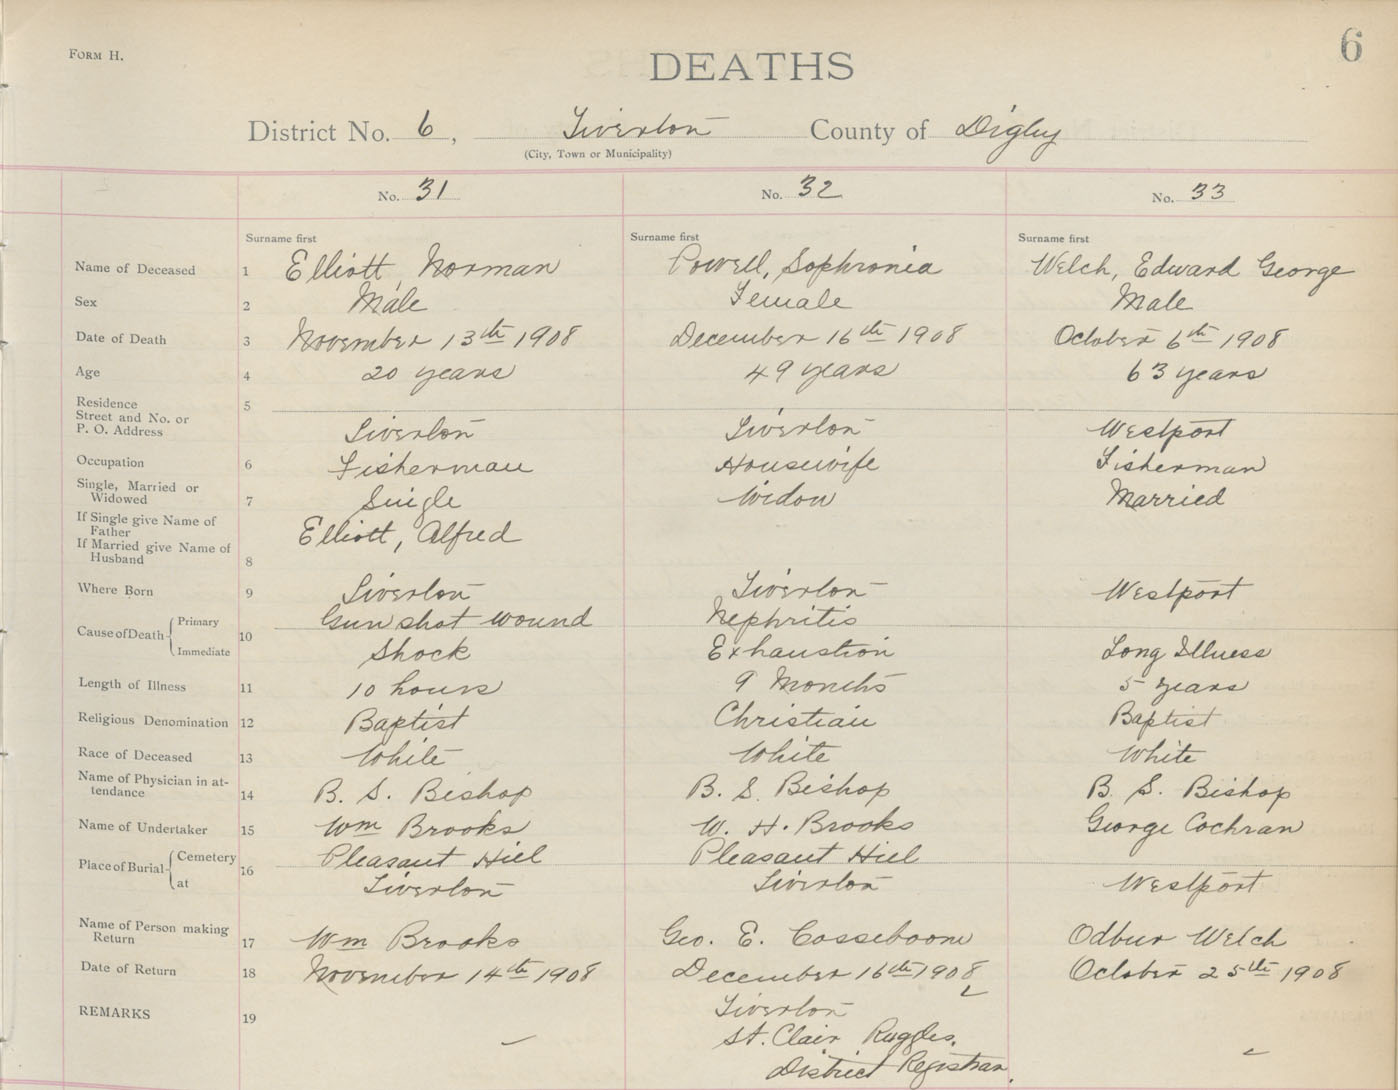 FORM H.
6
DEATHS
District No. 6, Tiverton County of Digby
(City, Town or Municipality)
No. 31 No. 32 No. 33
Surname first Surname first Surname first
Name of Deceased 1 Elliott, Norman Powell, Sophronia Welch, Edward George
Sex 2 Male Female Male
Date of Death 3 November 13th 1908 December 16th 1908 October 6th 1908
Age 4 20 years 49 years 63 years
Residence 5
Street and No. or
P. O. Address Tiverton Tiverton Westport
Occupation 6 Fisherman Housewife Fisherman
Single, Married or
Widowed 7 Single Widow Married
If Single give Name of
Father Elliott, Alfred
If Married give Name of
Husband 8
Where Born 9 Tiverton Tiverton Westport
Cause of Death Primary 10 Gun shot wound Nephritis
Immediate Shock Exhaustion Long Illness
Length of Illness 11 10 hours 9 Months 5 years
Religious Denomination 12 Baptist Christian Baptist
Race of Deceased 13 White White White
Name of Physician in at-
tendance 14 B. S. Bishop B. S. Bishop B. S. Bishop
Name of Undertaker 15 Wm Brooks W. H. Brooks George Cochran
Place of Burial Cemetery 16 Pleasant Hill Pleasant Hill
at Tiverton Tiverton Westport
Name of Person making
Return 17 Wm Brooks Geo. E. Cosseboom Odbur Welch
Date of Return 18 November 14th 1908 December 16th 1908 October 25th 1908
REMARKS 19 Tiverton
St. Clair Ruggles,
District Registrar.